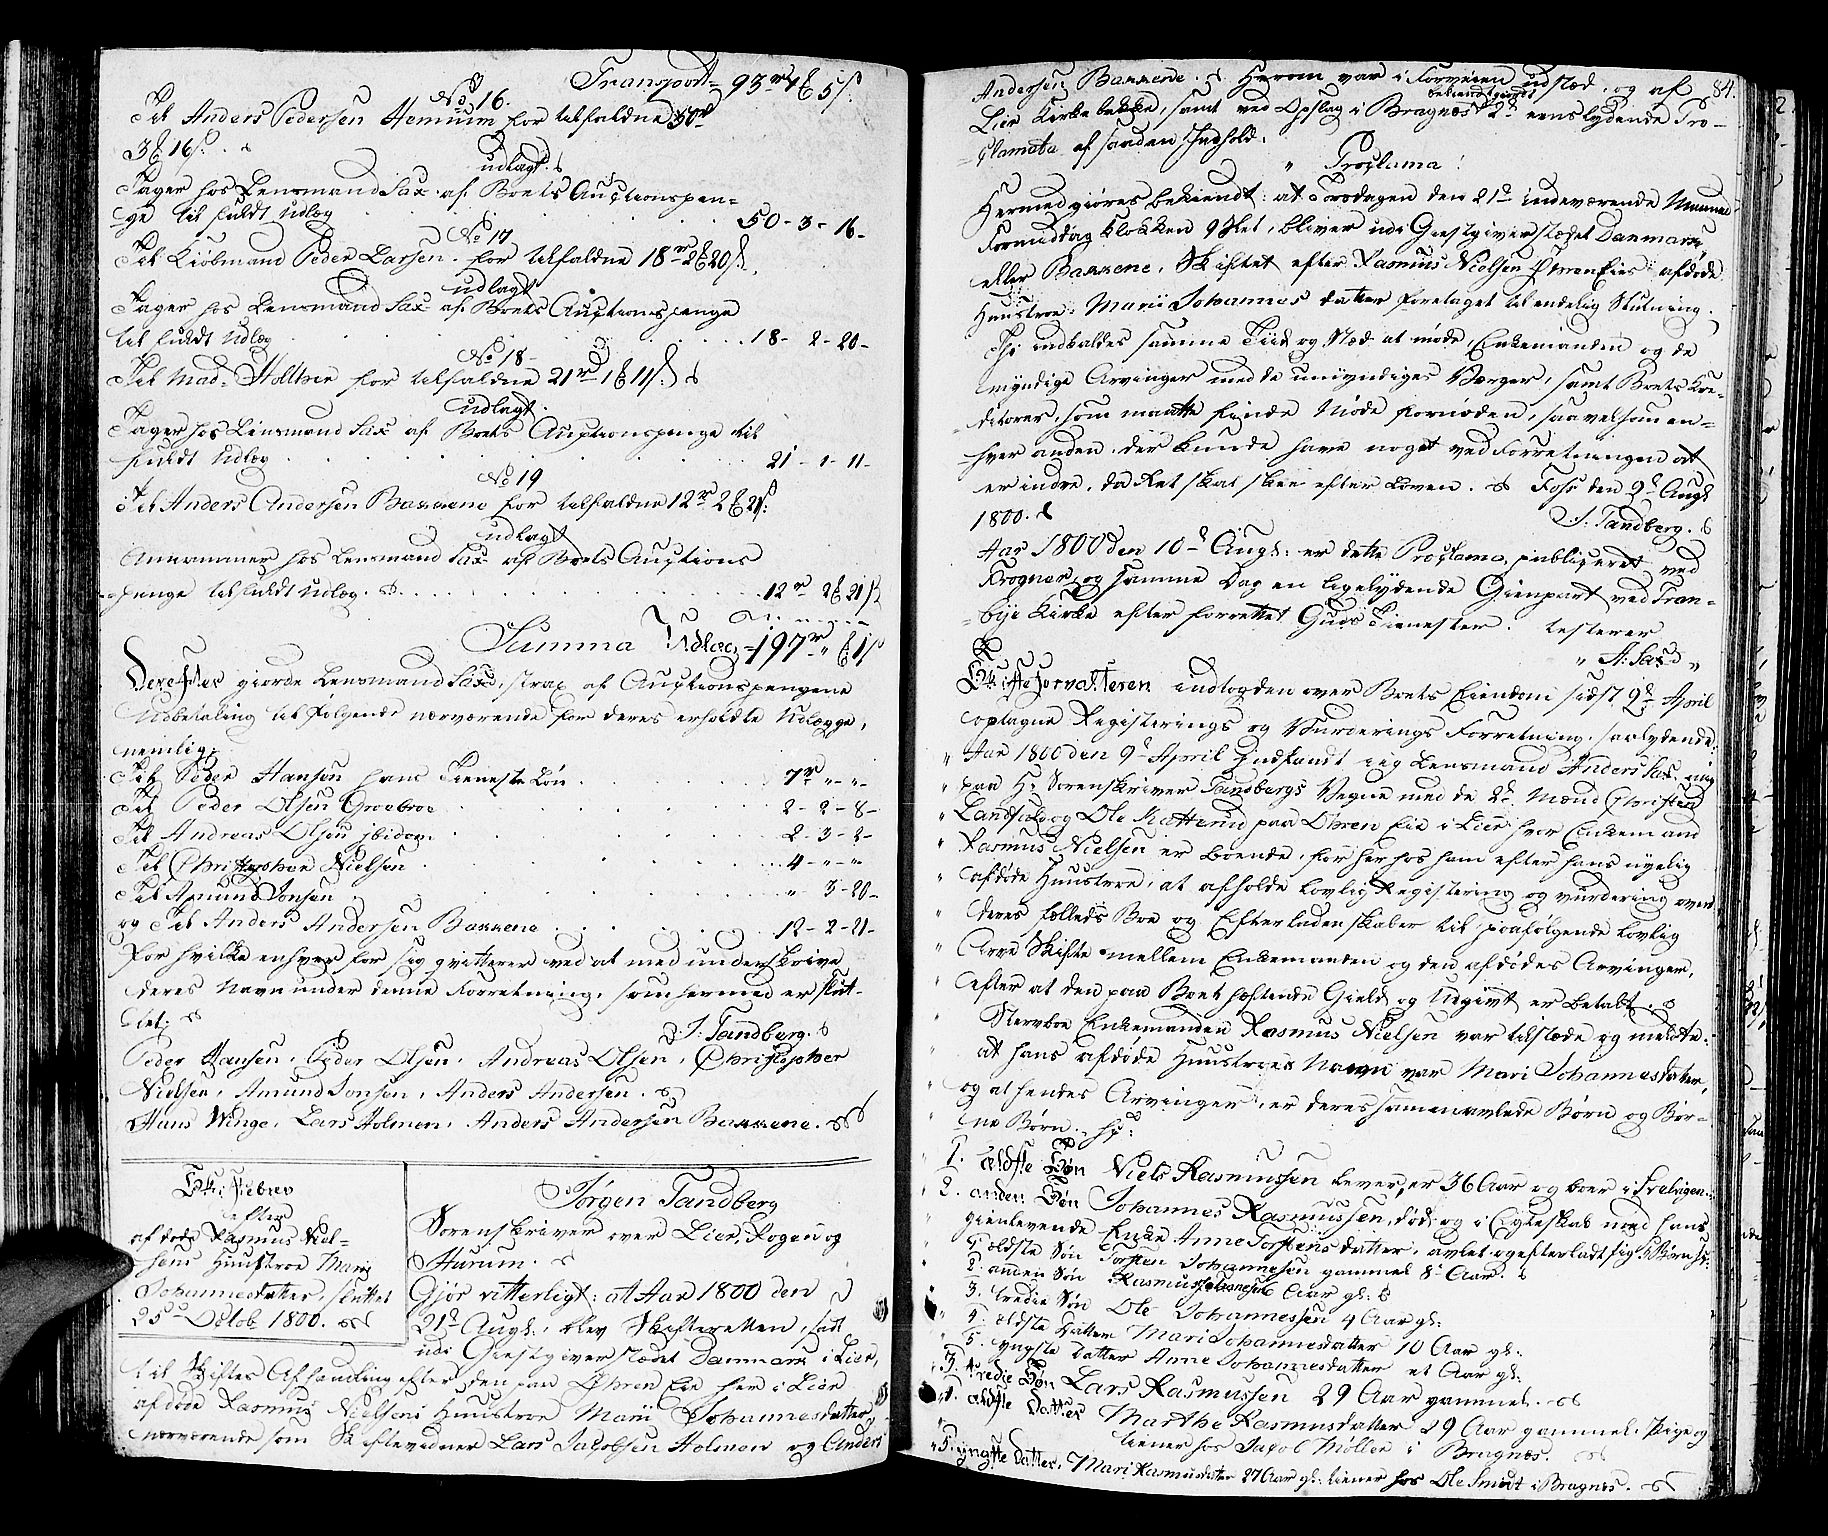 Transport 93 rd 4 ß 5 s.
No 16.
Til Anders Pedersen Hemium for tilfaldne 50 rd
3 ß 16 s.
udlagt.
Tager hos Lensmand Sax af Boets Auctionspen=
ge til fuldt udlæg 50 - 3 - 16 -
No 17
Til Kiøbmand Peder Larsen for tilfaldne 18 rd 2 ß 20 s.
udlagt
Tager hos Lensmand Sax af Boets Auctionspenge
til fuldt udlæg 18 - 2 - 20 -
No 18 -
Til Mad. Holther for tilfaldne 21 rd 1 ß 11 s.
udlagt.
Tager hos Lensmand Sax af Boets Auctionspenge til
fuldt udlæg 21 - 1 - 11 -
No 19
Til Anders Andersen Baxxene for tilfaldne 12 rd 2 ß 21 s.
udlagt
Annammer hos Lensmand Sax af Boets Auctions
penge til fuldt udlæg. 12 rd 2 ß 21 s.
Summa Udlæg = 197 rd " ß 1 s
Derefter giorde Lensmand Sax, strax af Auctionspengene
Udbetaling til følgende nærværende for deres erholdte Udlægge,
nemlig:
Til Peder Hansen hans Tieneste Løn 7 rd " - "
Til Peder Olsen Groebroe 2 - 2 - 8 -
Til Andreas Olsen ibidem 2 - 3 - 2 -
Til Christopher Nielsen 4 - " - "
Til Amund Jonsen " 3 - 20 -
og Til Anders Andersen Baxxene 12 - 2 - 21 -
for hvilke enhver for sig qvitterer ved at med underskrive
deres Navn under denne Forretning, som hermed er slut-
tet.
J. Tandberg.
Peder Hansen, Peder Olsen, Andreas Olsen, Christopher
Nielsen, Amund Jonsen, Anders Andersen.
Hans Winge, Lars Holmen, Anders Andersen Baxxene.
Skiftebrev
efter
afdøde Rasmus Niel-
sens Huustroe Marie
Johannesdatter, sluttet
25de Octob. 1800.
Jørgen Tandberg
Sorenskriver over Lier, Røgen og
Hurum.
Giør vitterligt: at Aar 1800 den
21de Augs., blev Skifteretten, sadt
udi Giestgiverstædet Danmark i Lier,
til Skiftes Afhandling efter den paa Øhren Eie her i Lier
afdøde Rasmus Nielsens Huustroe Marii Johannesdatter,
nærværende som Skiftevidner Lars Jacobsen Holmen og Anders
84.
Andersen Baxxene. Herom var i Forveien udstæd, og af
bekiendtgiort
Lier Kirkebakke, samt ved Opslag i Bragnæs 2de eenslydende Pro-
clamata af saadan Indhold.
" Proclama!
Hermed giøres bekiendt: at Torsdagen den 21de indeværende Maaned
Formiddag Klokken 9 slet, bliver udi Giestgiverstædet Danmark
eller Baxxene, Skiftet efter Rasmus Nielsen Øhren Eies afdøde
Huustroe, Marii Johannes datter foretaget til endelig Slutning.
Thi indkaldes samme Tiid og Stæd at møde, Enkemanden og de
myndige Arvinger med de umyndiges Værger, samt Boets Kre-
ditorer, som maatte finde Møde fornøden, saavelsom en-
hver anden, der kunde have noget ved Forretningen at
erindre, da Ret skal skee efter Loven. Foss den 9de Augs.
1800.
J. Tandberg.
Aar 1800 den 10de Augs. er dette Proclama publiceret ved
Frogner, og samme Dag en ligelydende Gienpart ved Tran-
bye Kirke efter forrettet Guds Tienester. testerer
" A: Sax "
Skifteforvalteren indlogden over Boets Eiendom sidst 9de April
optagne Registerings og Vurderings Forretning, saalydende:
" Aar 1800 den 9de April Indfandt iig Lensmand Anders Sax, mig
" paa Hr Sorenskriver Tandbergs Vegne med de 2de Mænd Christen
" Landfald og Ole Kitterud paa Øhren Eie i Lier hvor Enkemand
" Rasmus Nielsen er boende, for her hos ham efter hans nyelig
" afdøde Huustroe, at afholde lovlig Registering og vurdering over
" deres fælleds Boe og Efterladenskaber til paafølgende lovlig
" Arve Skifte mellem Enkemanden og den afdødes Arvinger,
" efter at den paa Boet hæftende Gield og Udgivt er betalt.
" Stervboe Enkemanden Rasmus Nielsen var tilstæde og meldte:
" at hans afdøde Huustroes Navn var Mari Johannesdatter,
" og at hendes Arvinger, er deres sammenavlede Børn og Bør-
" ne Børn:
" 1. ældste Søn Niels Rasmussen lever, er 36 Aar og boer i
" 2. anden Søn Johannes Rasmussen, død, og i Egteskab med hans
" gienlevende Enke Anne Torstensdatter, avlet og efterladt sig 5 Børn
" 1. ældste Søn Torsten Johannesen gammel 8te Aar.
" 2. anden Søn Rasmus Johannesen 6 Aar gl:
" 3. tredie Søn Ole Johannessen 4 Aar gl:
" 4. ældste Datter Mari Johannesdatter 10 Aar gl:
" 5. yngste Datter Anne Johannesdatter et Aar gl:
" 3. tredie Søn Lars Rasmussen 29 Aar gammel.
" 4. ældste Datter Marthe Rasmusdatter 29 Aar gammel, Pige og
" tiener hos Jacob Møller i Bragnes.
" 5. yngste Datter, Mari Rasmusdatter 27 Aar gl: tiener hos Ole Smidt i Bragnes.